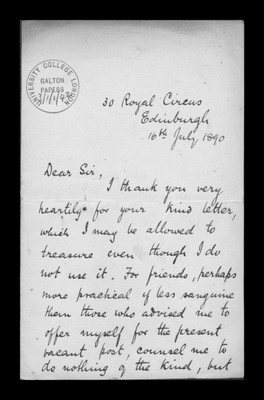 UNIVERSITY COLLEGE LONDON
GALTON
PAPERS
30 Royal Circus
Edinburgh
16th July, 1890
Dear Sir,
I thank you very
heartily for your kind letter,
which I may be allowed to
treasure even though I do
not use it. For friends, perhaps
more practical if less sanguine
than those who advised me to
offer myself for the present
vacant post, counsel me to
do nothing of the kind, but